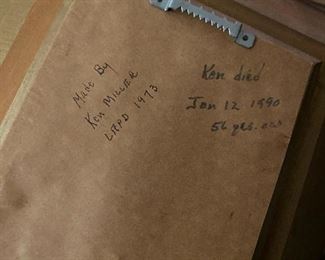 Made By
Ken MILLER
LAPD 1973
Ken died
Jan 12 1990
56 yrs. old